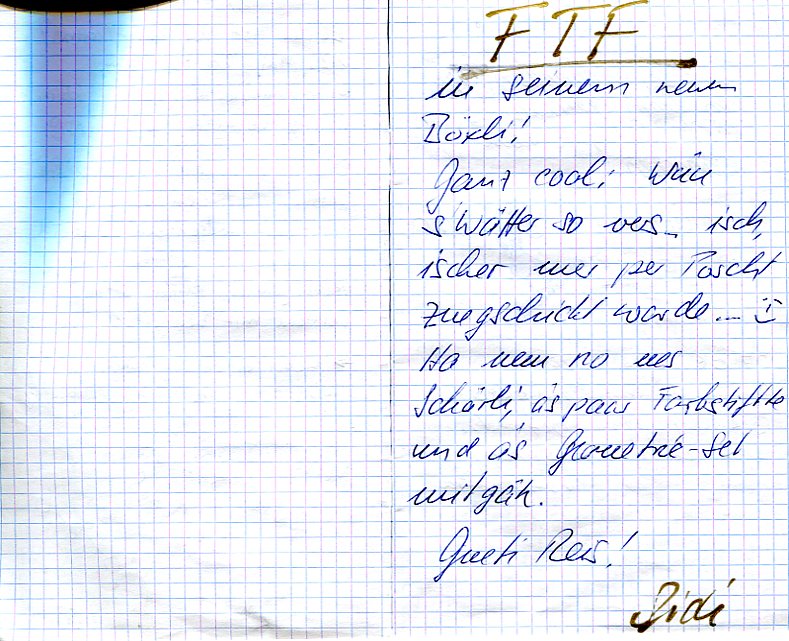 FTF
in seinem neuen
Böxli!
Ganz cool; Wäu
s'Wätter so vers_ isch,
ischer mer per Poscht
zuegschickt worde... :-)
Ha nem no nes
Schärli, äs paar Farbstiftte
und äs Geometrie-Set
mitgäh.
Gueti Reis!
Didi